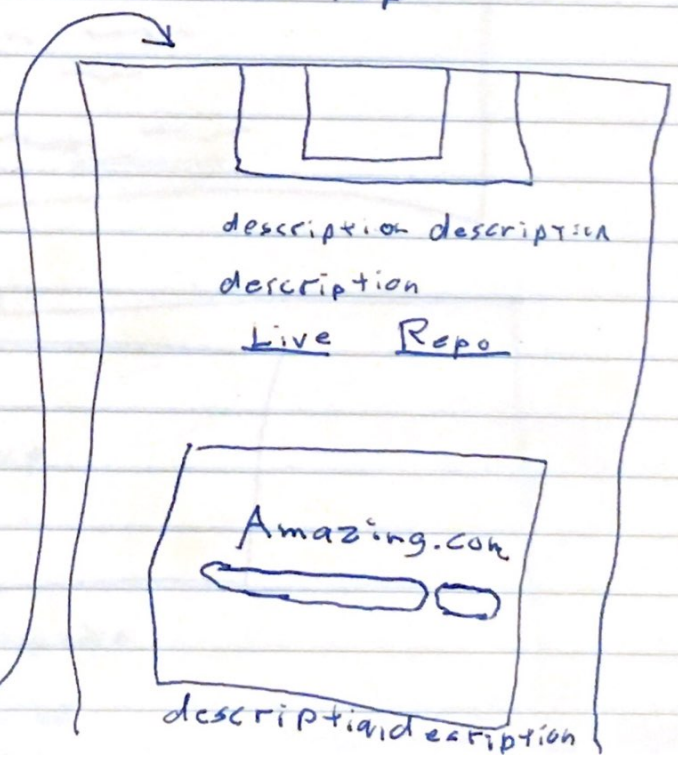 description description
description
Live Repo
Amazing.com
description